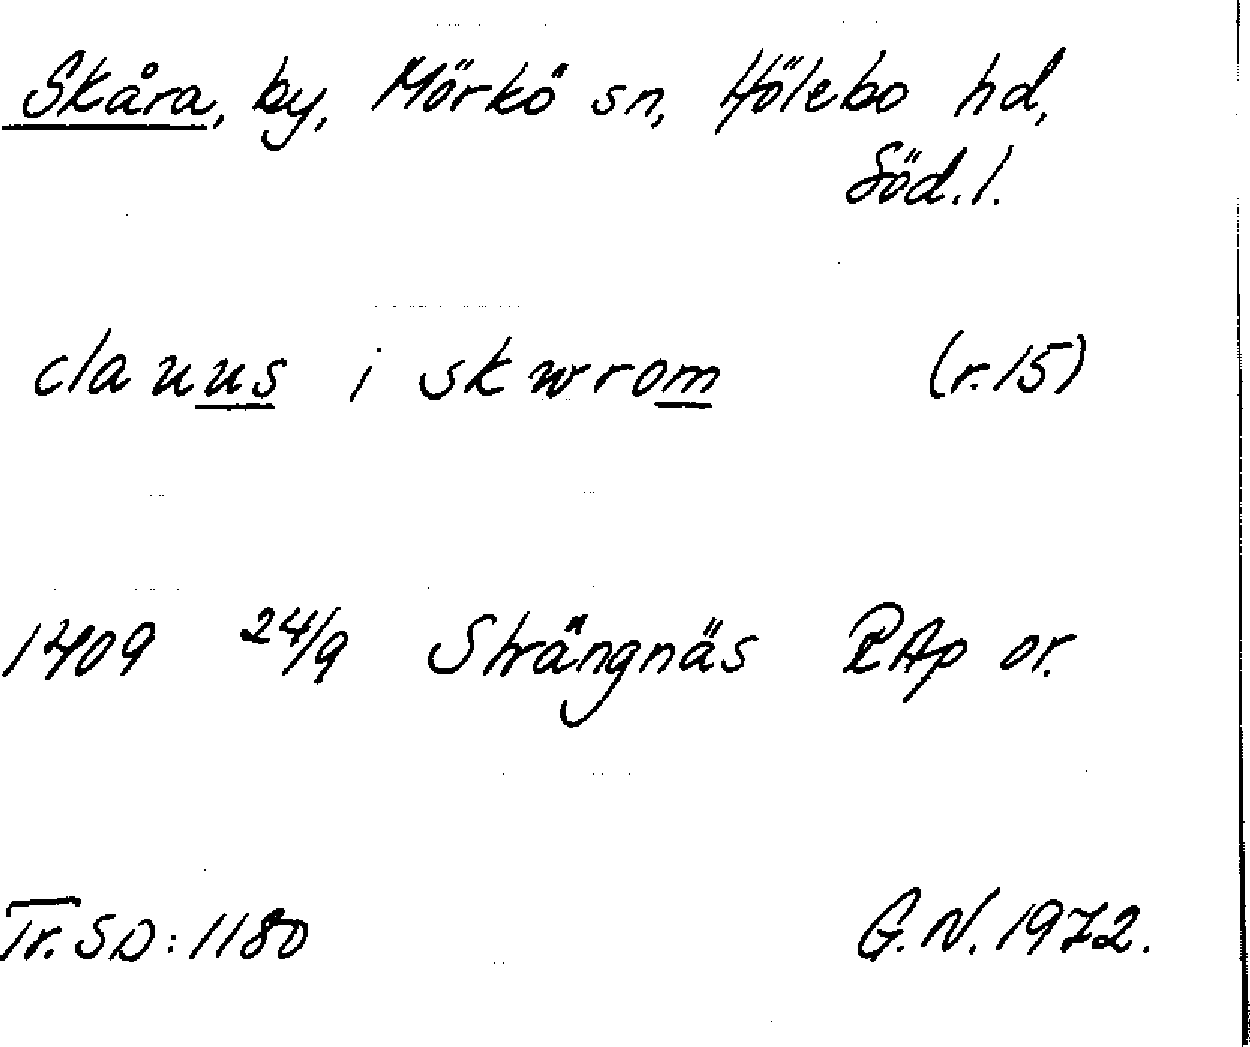 Skåra, by, Mörkö sn, Hölebo hd,
Söd.l.
clauus i skwrom (r.15)
1409 24/9 Strängnäs RAp or.
Tr. SD: 1180 G.N. 1972.